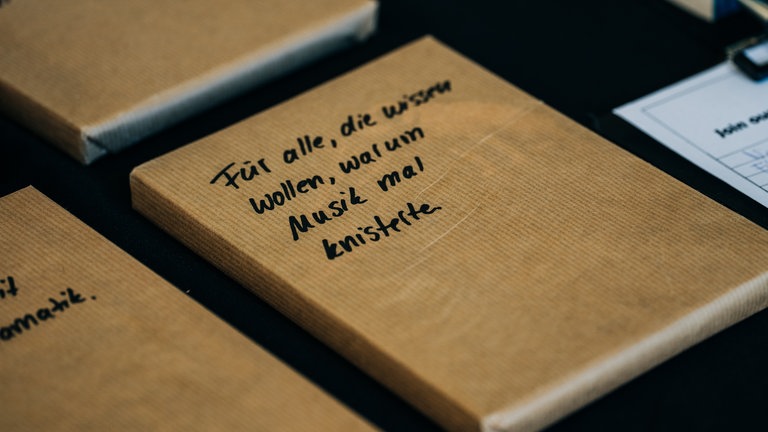 Für alle, die wissen
wollen, warum
Musik mal
knisterte.
omatik.
Join ou